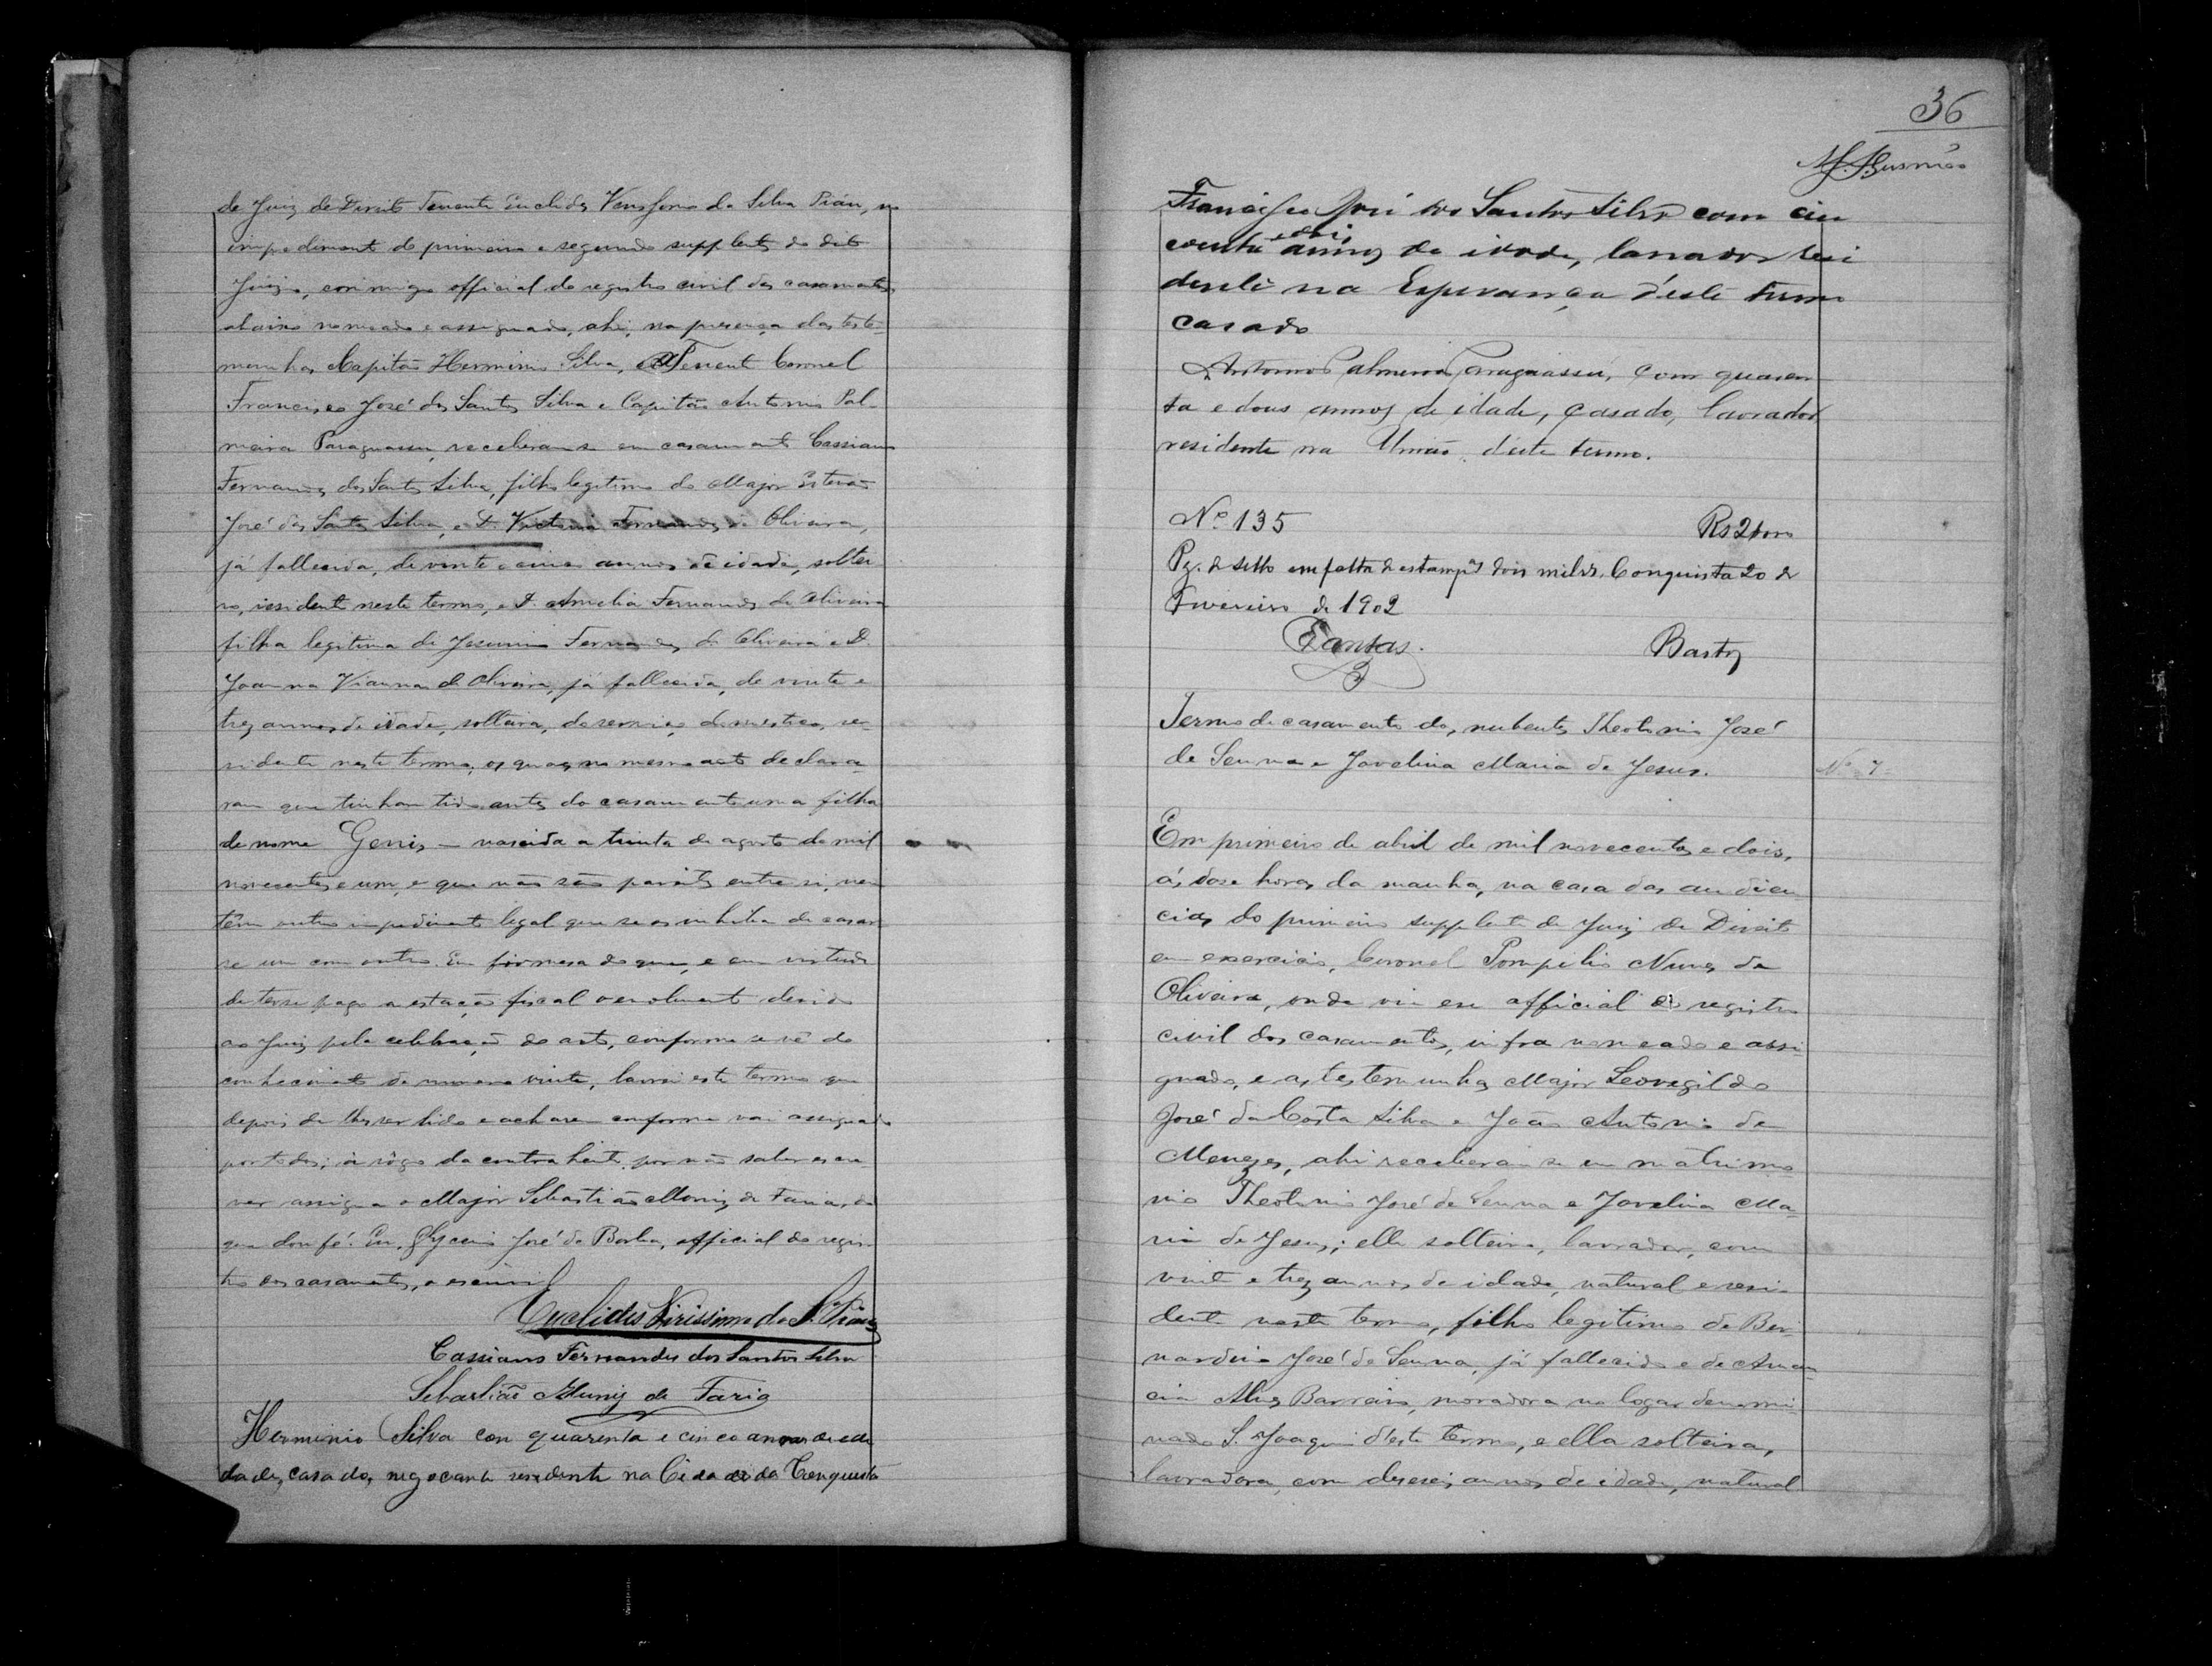 de Juiz de Direito Tenente Euclides Verissimo da Silva Pião, no
impedimento do primeiro e segundo supplentes do dito
Juizo, comigo official do registro civil dos casamentos
abaixo nomeado e assignado, ahi, na presença das teste-
munhas Capitão Herminio Silva, Tenente Coronel
Francisco José dos Santos Silva e Capitão Antonio Pal-
meira Paraguassu, receberam-se em casamento Cassiano
Fernandes dos Santos Silva, filho legitimo do Major Estevão
José dos Santos Silva, e D. Victoria Fernandes de Oliveira,
já fallecida, de vinte e cinco annos de idade, soltei-
ro, residente neste termo, e D. Amelia Fernandes de Oliveira
filha legitima de Fernandes de Oliveira e D.
Joanna Vianna de Oliveira, já fallecida, de vinte e
tres annos de idade, solteira, do serviço domestico, re-
sidente neste termo; os quaes no mesmo acto declara-
ram que tinham tido antes do casamento uma filha
de nome Genis, — nascida a trinta de agosto de mil
novecentos e um, e que não são parentes entre si, nem
têm outro impedimento legal que se os inhiba de casar-
se um com outro. Em firmesa do que, e em virtude
de ter-se pago a estação fiscal o emolumento devido
ao Juiz pela celebração do acto, conforme se vê do
conhecimento de numero vinte, lavrei este termo que
depois de lhes ser lido e acharem conforme vai assignado
por todos; á rôgo da contrahente, por não saber escre
ver assigna o Major Sebastião Moniz de Faria, do
que dou fé. Eu, Glycerio José da Borba, official do regis-
tro dos casamentos, o escrevi
Euclides Virissimo da S. Pião
Cassiano Fernandes dos Santos Silva
Sebastião Muniz de Faria
Herminio Silva com quarenta e cinco annos de eda
dade, casado, negociante residente na Cidade da Conquista
36
M. S. Gusmão
Francisco José dos Santos Silva com cin
coenta e dois annos de idade, lavrador resi
dente na Esperança d'este termo
casado
Antonio Palmeira Paraguassú, com quaren
ta e dous annos de idade, casado, lavrador
residente na União, deste termo.
Nº 135 Rs 2$000
Pg. de sello em falta de estampas dois mil rs. Conquista 20 de
Fevereiro de 1902
Dantas. Bastos
Termo de casamento dos nubentes Theotonio José
de Senna e Jovelina Maria de Jesus.
Nº 7
Em primeiro de abril de mil novecentos e dois,
ás dose horas da manhã, na casa das audien
cias do primeiro supplente de Juiz de Direito
em exercicio, Coronel Pompilio Nunes de
Oliveira, onde vim eu official do registro
civil dos casamentos, infra nomeado e assi
gnado, e as testemunhas Major Leovegildo
José da Costa Silva e João Antonio de
Menezes, ahi receberam-se em matrimo
nio Theotonio José de Senna e Jovelina Ma-
ria de Jesus; elle solteiro, lavrador, com
vinte e tres annos de idade, natural e resi-
dente neste termo, filho legitimo de Ber
nardino José de Senna, já fallecido e de Aman
cia Alves Barreiro, moradora no logar denomi-
nado S. Joaquim d'este termo, e ella solteira,
lavradora, com deseseis annos de idade, natural